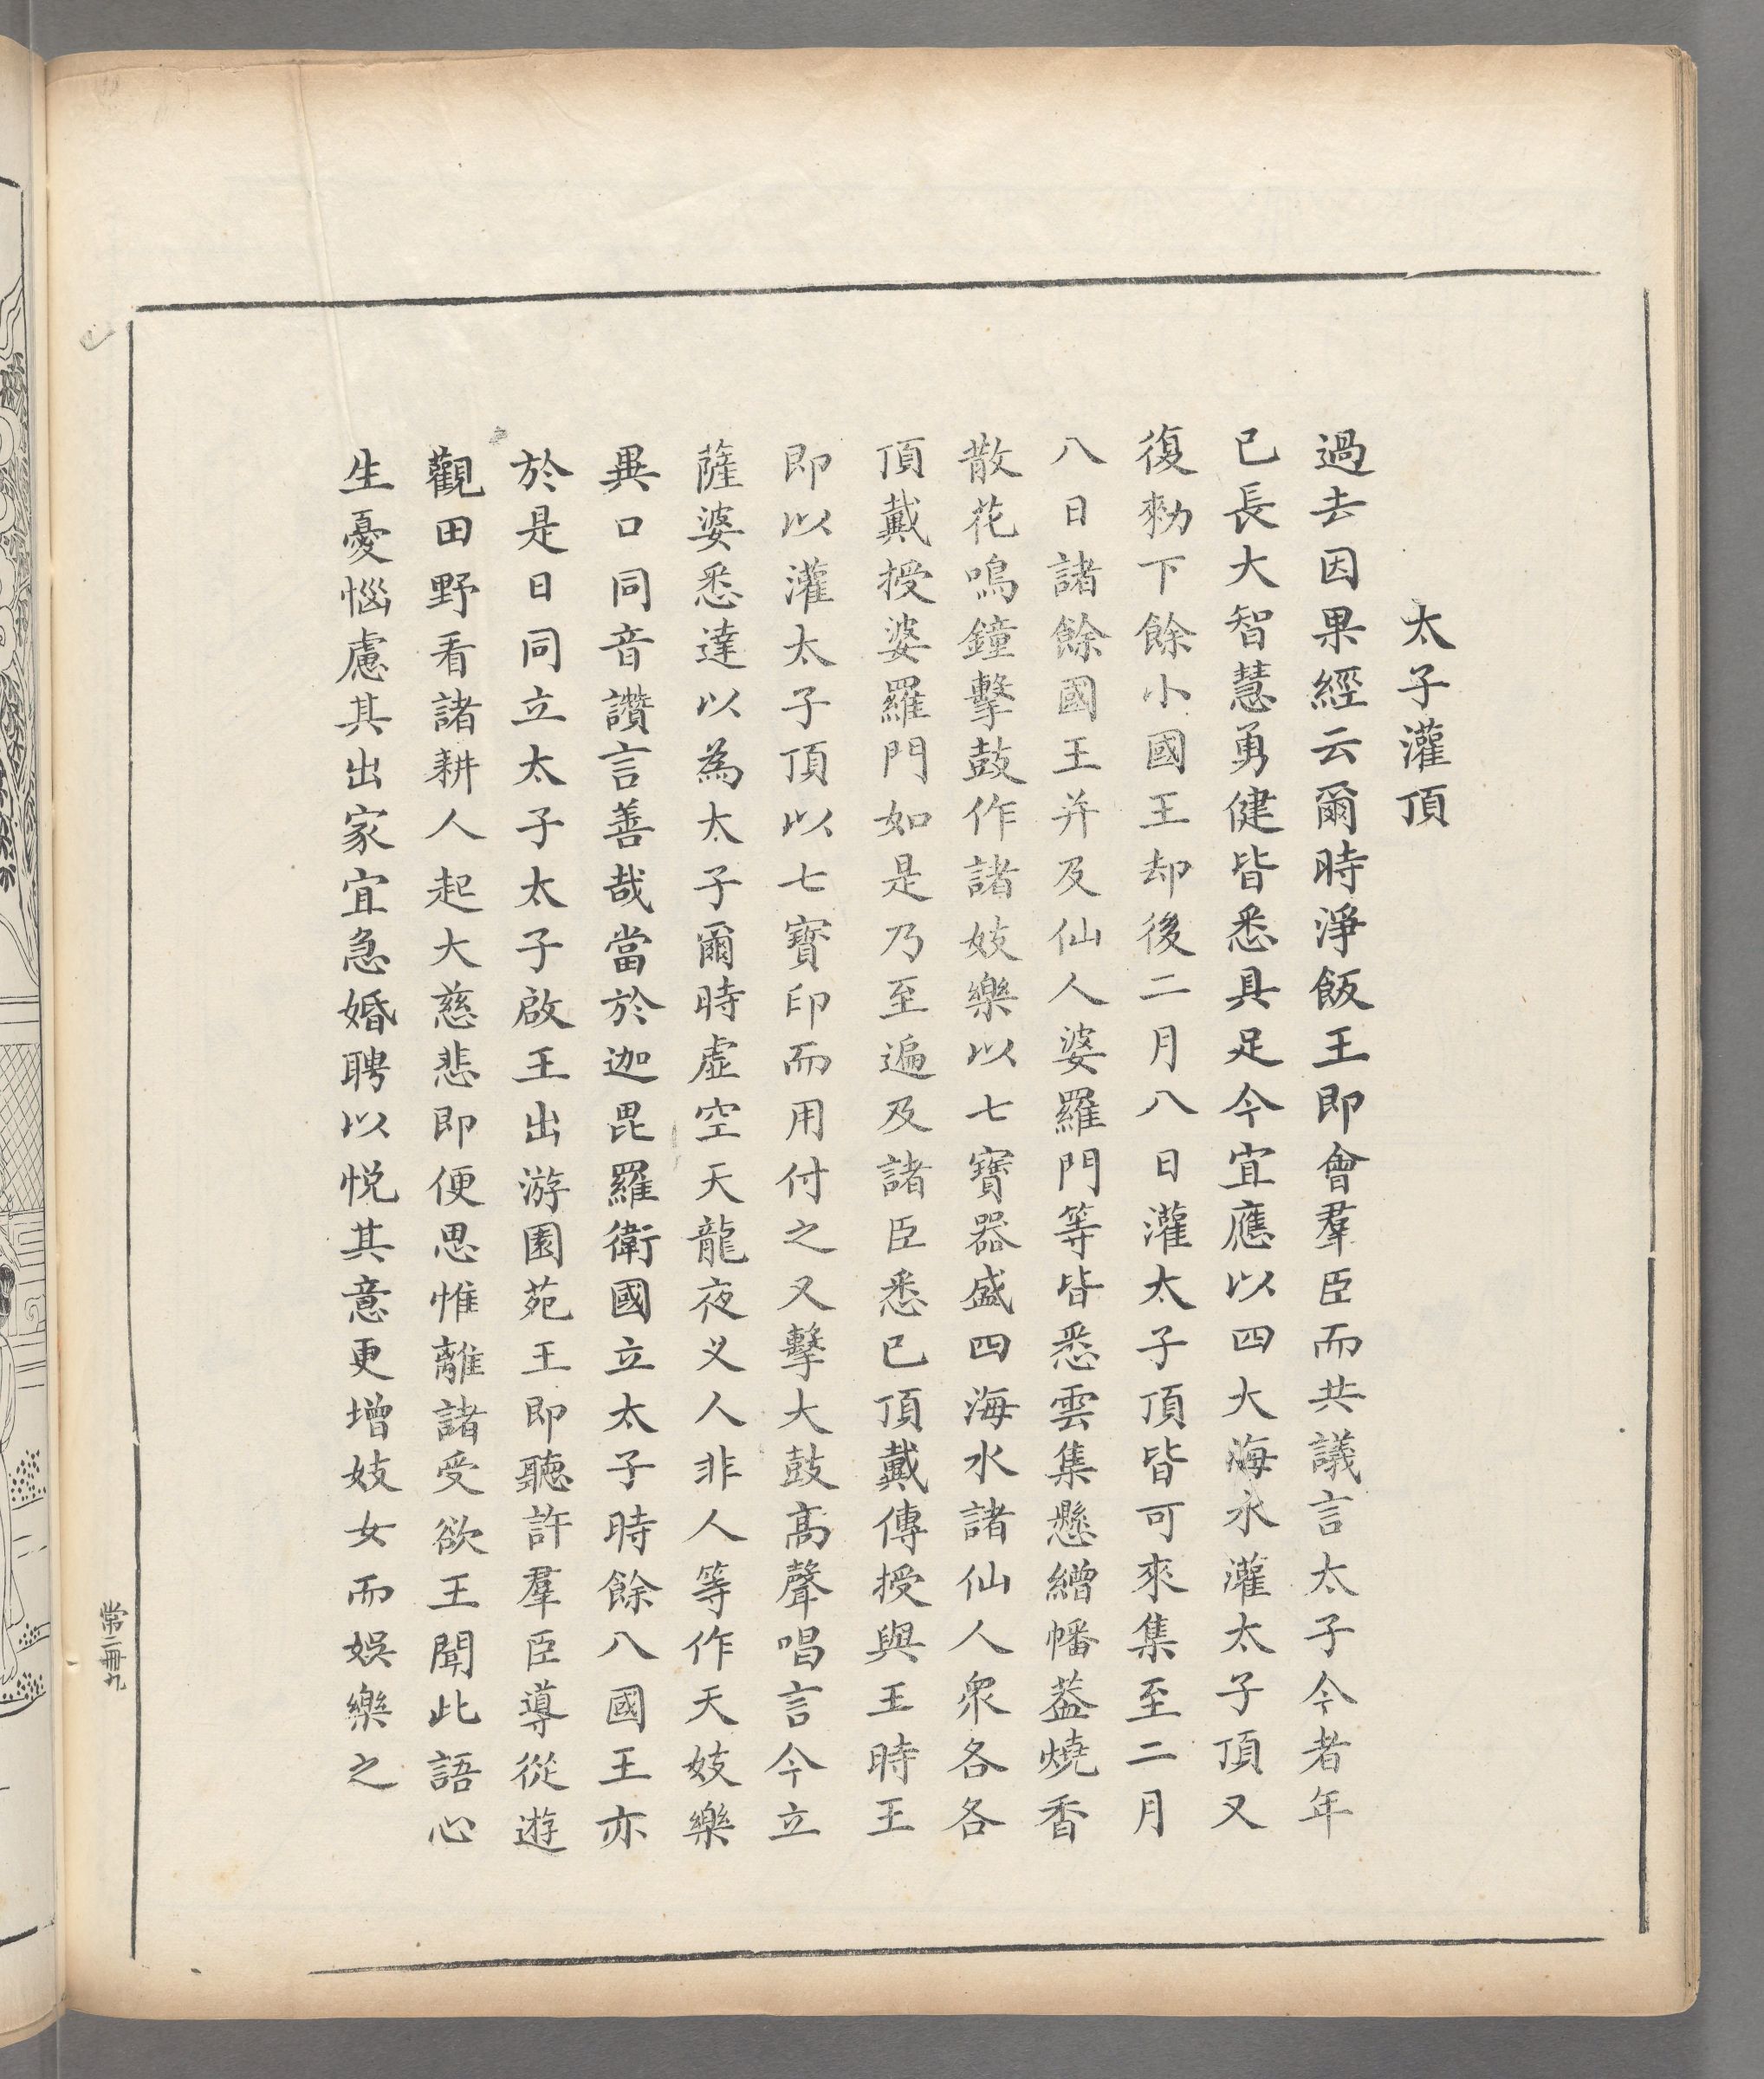 太子灌頂
過去因果經云爾時淨飯王即會羣臣而共議言太子今者年
已長大智慧勇健皆悉具足今宜應以四大海水灌太子頂又
復勑下餘小國王却後二月八日灌太子頂皆可來集至二月
八日諸餘國王并及仙人婆羅門等皆悉雲集懸繒幡葢燒香
散花鳴鐘擊鼓作諸妓樂以七寶器盛四海水諸仙人衆各各
頂戴授婆羅門如是乃至遍及諸臣悉已頂戴傳授與王時王
即以灌太子頂以七寶印而用付之又擊大鼓高聲唱言今立
薩婆悉達以為太子爾時虛空天龍夜义人非人等作天妓樂
異口同音讚言善哉當於迦毘羅衛國立太子時餘八國王亦
於是日同立太子太子啟王出游園苑王即聽許羣臣導從遊
觀田野看諸耕人起大慈悲即便思惟離諸受欲王聞此語心
生憂惱慮其出家宜急婚聘以悅其意更增妓女而娛樂之
常二冊九